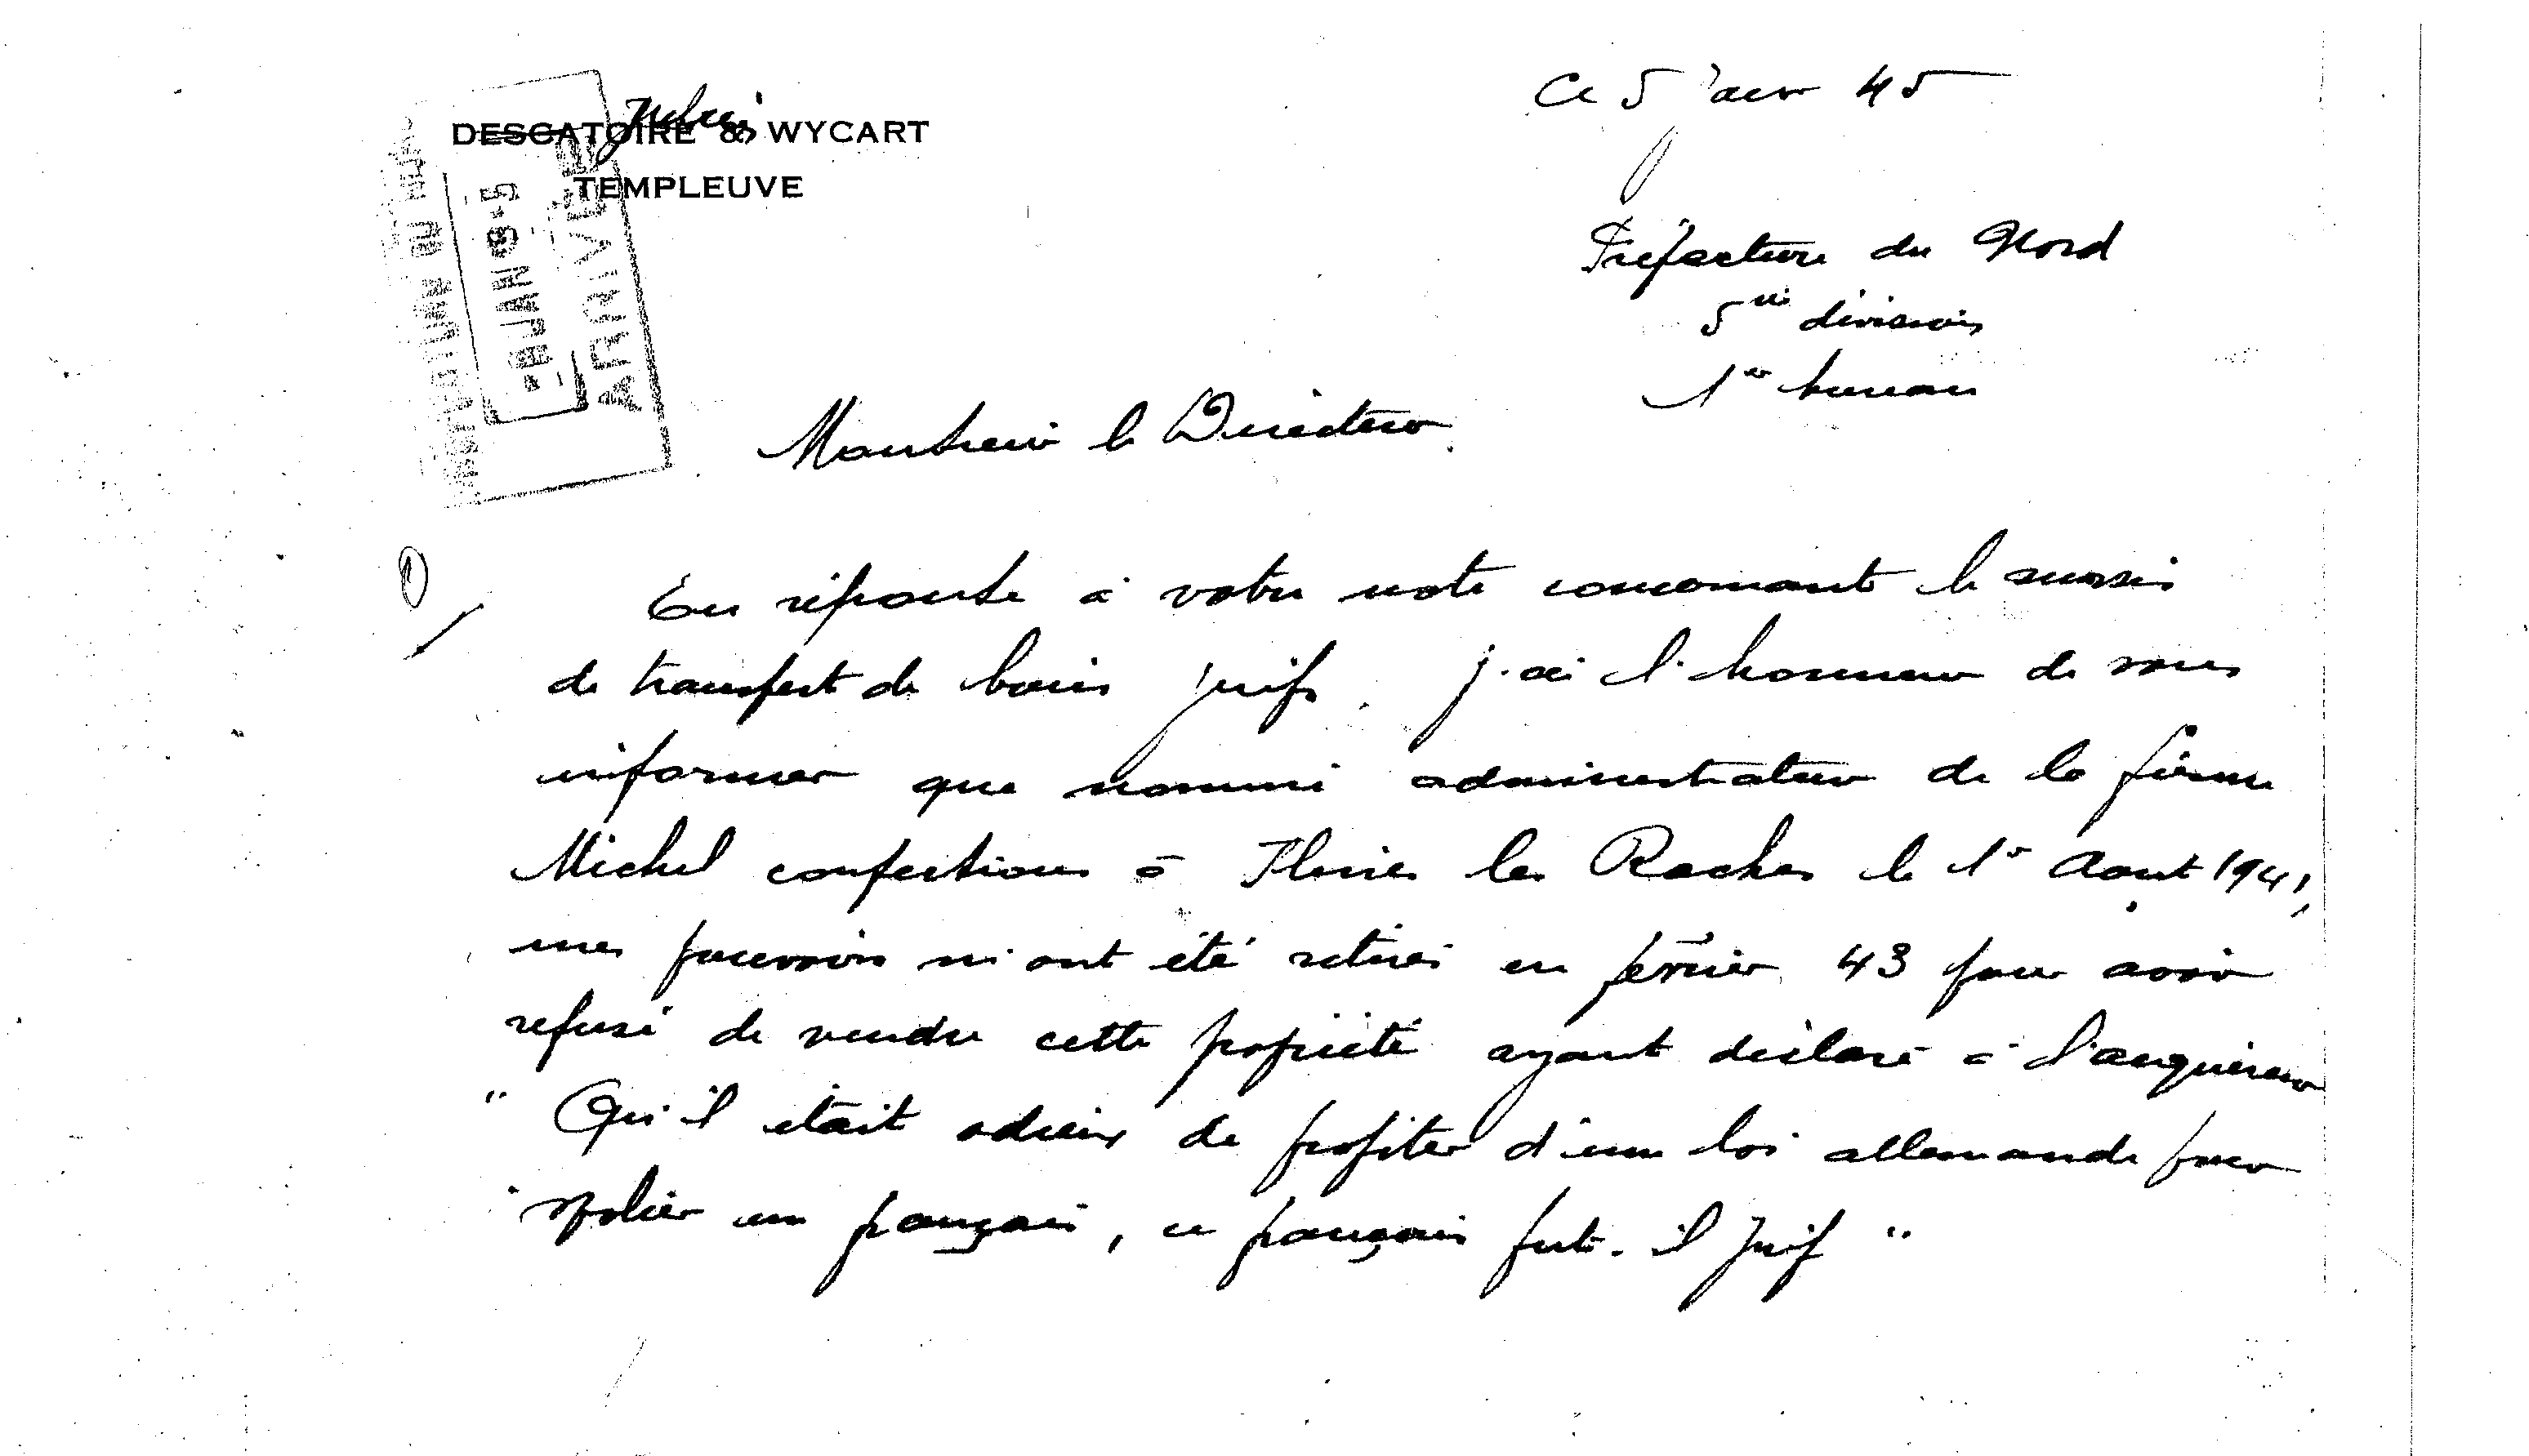 Ce 5 janv 45
DESCATOIRE & WYCART
TEMPLEUVE
ARRIVÉE
JAN
Préfecture du Nord
5me division
1er bureau
Monsieur le Directeur.
En réponse à votre note concernant le sursis
de transfert de biens juifs, j'ai l'honneur de vous
informer que nommé administrateur de la firme
Michel confections à Flines les Raches le 1er Aout 1941,
mes pouvoirs m'ont été retirés en février 43 pour avoir
refusé de vendre cette propriété ayant déclaré à l'acquéreur
" Qu'il était odieux de profiter d'une loi allemande pour
" spolier un français, ce français fut-il Juif "